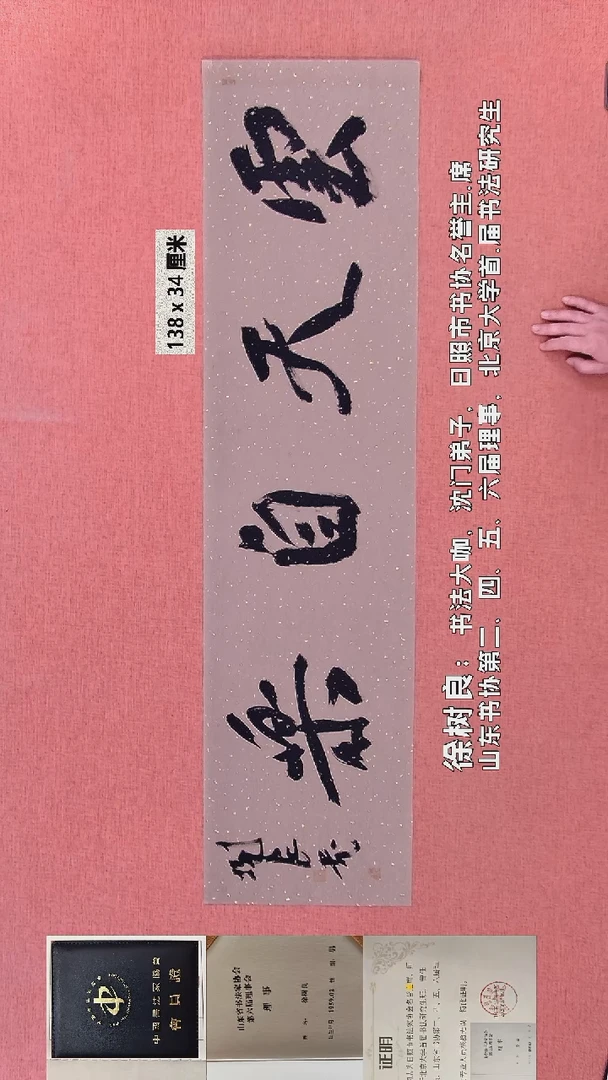 138 x 34 厘米
雲天自樂
徐树良：书法大咖，沈门弟子，日照市书协名誉主.席
山东书协第二、四、五、六届理事，北京大学首.届书法研究生
中國書法家協會
會員證
山东省书法家协会
第六届理事会
理事
证明